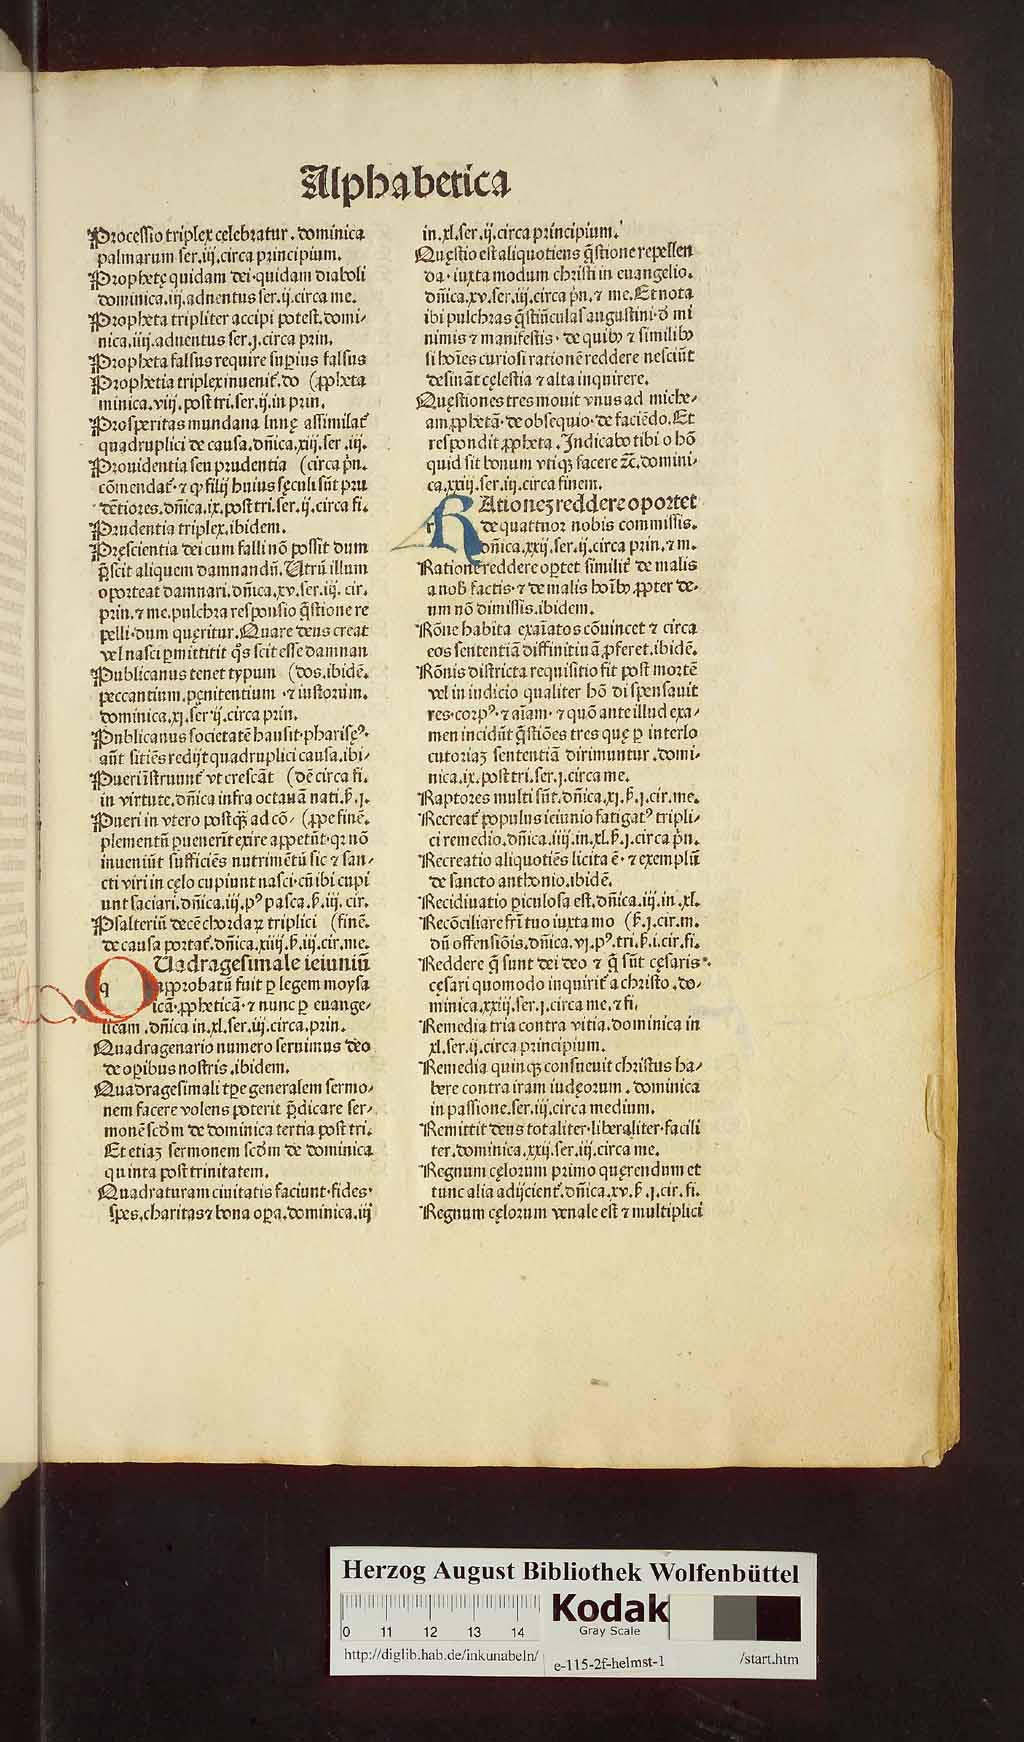 Alphabetica
Processio triplex cęlebratur. dominica
palmarum ser.iij.circa principium.
Prophetę quidam dei·quidam diaboli
dominica.iij.aduentus ser.ij.circa me.
Propheta tripliter accipi potest.domi-
nica.iiij.aduentus ser.j.circa prin.
Propheta falsus require supius falsus
Prophetia triplex inuenit̃.do (ꝓpheta
minica.viij.post tri.ser.ij.in prin.
Prosperitas mundana lunę assimilat̃
quadruplici de causa.dñica.xiij.ser.iij.
Prouidentia seu prudentia (circa pñ.
cõmendat̃·⁊ ꝙ filij huius sęculi sũt pru
dẽtiores.dñica.ix.post tri.ser.ij.circa fi.
Prudentia triplex.ibidem.
Pręscientia dei cum falli nõ possit dum
p̃scit aliquem damnandũ.Utrũ illum
oporteat damnari.dñica.xv.ser.iij. cir.
prin.⁊ me.pulchra responsio q̃stione re
pelli·dum quęritur.Quare deus creat
vel nasci ꝑmittitit q̃s scit esse damnan
Publicanus tenet typum (dos.ibidẽ.
peccantium.pęnitentium ·⁊ iustorum.
dominica.xj.ser.ij.circa prin.
Publicanus societatẽ hausit·pharisęꝰ·
aũt sitiẽs redijt quadruplici causa.ibi-
Pueri ĩstruunt̃ vt crescãt (dẽ circa fi.
in virtute.dñica infra octauã nati.ẞ.j.
Pueri in vtero postq̃ ad cõ- (ꝓpe finẽ.
plementũ ꝑuenerĩt exire appetũt·qꝛ nõ
inueniũt sufficiẽs nutrimẽtũ sic ⁊ san-
cti viri in cęlo cupiunt nasci·cũ ibi cupi
unt saciari.dñica.iij.pꝰ pasca.ẞ.iij. cir.
Psalteriũ decẽ chordaꝝ triplici (finẽ.
de causa portat̃.dñica.xiiij.ẞ.iij.cir.me.
QUadragesimale ieiuniũ
q approbatũ fuit ꝑ legem moysa
icã·ꝓpheticã·⁊ nunc ꝑ euange-
licam.dñica in.xl.ser.iij.circa.prin.
Quadragenario numero seruimus deo
de oꝑibus nostris.ibidem.
Quadragesimali tꝑe generalem sermo-
nem facere volens poterit p̃dicare ser-
monẽ scđm de dominica tertia post tri.
Et etiaꝫ sermonem scđm de dominica
quinta post trinitatem.
Quadraturam ciuitatis faciunt·fides·
spes.charitas ⁊ bona oꝑa.dominica.iij
in.xl.ser.ij.circa principium.
Quęstio est aliquotiens q̃stione repellen
da·iuxta modum christi in euangelio.
dñica.xv.ser.iij.circa pñ.⁊ me.Et nota
ibi pulchras q̃stiũculas augustini·đ mi
nimis ⁊ manifestis·de quibꝰ ⁊ similibꝰ
si hoĩes curiosi rationẽ reddere nesciũt
desinãt cęlestia ⁊ alta inquirere.
Quęstiones tres mouit vnus ad miche-
am ꝓphetã·de obsequio·de faciẽdo.Et
respondit ꝓpheta.Indicabo tibi o hõ
quid sit bonum vtiqꝫ facere ⁊c̃.domini-
ca.xxiij.ser.iij.circa finem.
RAtioneꝫ reddere oportet
r de quattuor nobis commissis.
dñica.xxij.ser.ij.circa prin.⁊ m.
Rationẽ reddere oꝑtet similit̃ de malis
a nob̃ factis·⁊ de malis hoĩbꝰ ꝓpter de-
um nõ dimissis.ibidem.
Rõne habita exaĩatos cõuincet ⁊ circa
eos sententiã diffinitiuã ꝓferet.ibidẽ.
Rõnis districta requisitio fit post mortẽ
vel in iudicio qualiter hõ dispensauit
res·corpꝰ·⁊ aĩam·⁊ quõ ante illud exa-
men incidũt q̃stiões tres quę ꝑ interlo
cutoriaꝫ sententiã dirimuntur.domi-
nica.ix.post tri.ser.j.circa me.
Raptores multi sũt.dñica.xj.ẞ.j.cir.me.
Recreat̃ populus ieiunio fatigatꝰ tripli-
ci remedio.dñica.iiij.in.xl.ẞ.j.circa pñ.
Recreatio aliquotiẽs licita ẽ·⁊ exemplũ
de sancto anthonio.ibidẽ.
Recidiuatio ꝑiculosa est.dñica.iij.in.xl.
Recõciliare frĩ tuo iuxta mo (ẞ.j.cir.m.
dũ offensiõis.dñica.vj.pꝰ.tri.ẞ.i.cir.fi.
Reddere q̃ sunt dei deo ⁊ q̃ sũt cęsaris·
cęsari quomodo inquirit̃ a christo.do-
minica.xxiij.ser.j.circa me.⁊ fi.
Remedia tria contra vitia.dominica in
xl.ser.ij.circa principium.
Remedia quinqꝫ consueuit christus ha-
bere contra iram iudęorum.dominica
in passione.ser.iij.circa medium.
Remittit deus totaliter·liberaliter·facili
ter.dominica.xxij.ser.iij.circa me.
Regnum cęlorum primo quęrendum et
tunc alia adijcient̃.dñica.xv.ẞ.j.cir.fi.
Regnum cęlorum venale est ⁊ multiplici
Herzog August Bibliothek Wolfenbüttel
0 11 12 13 14
Kodak
Gray Scale
http://diglib.hab.de/inkunabeln/ e-115-2f-helmst-1 /start.htm